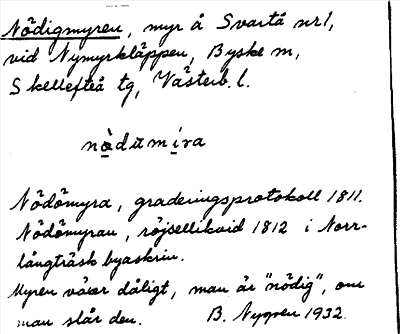 Nödigmyren, myr å Svartå nr 1,
vid Nymyrkläppen, Byske m,
Skellefteå tg, Västerb. l.
nödumira
Nödömyra, graderingsprotokoll 1811.
Nödömyran, röjsellikvid 1812 i Norr-
långträsk byaskrin.
Myren växer dåligt, man är "nödig", om
man slår den. B. Nygren 1932.